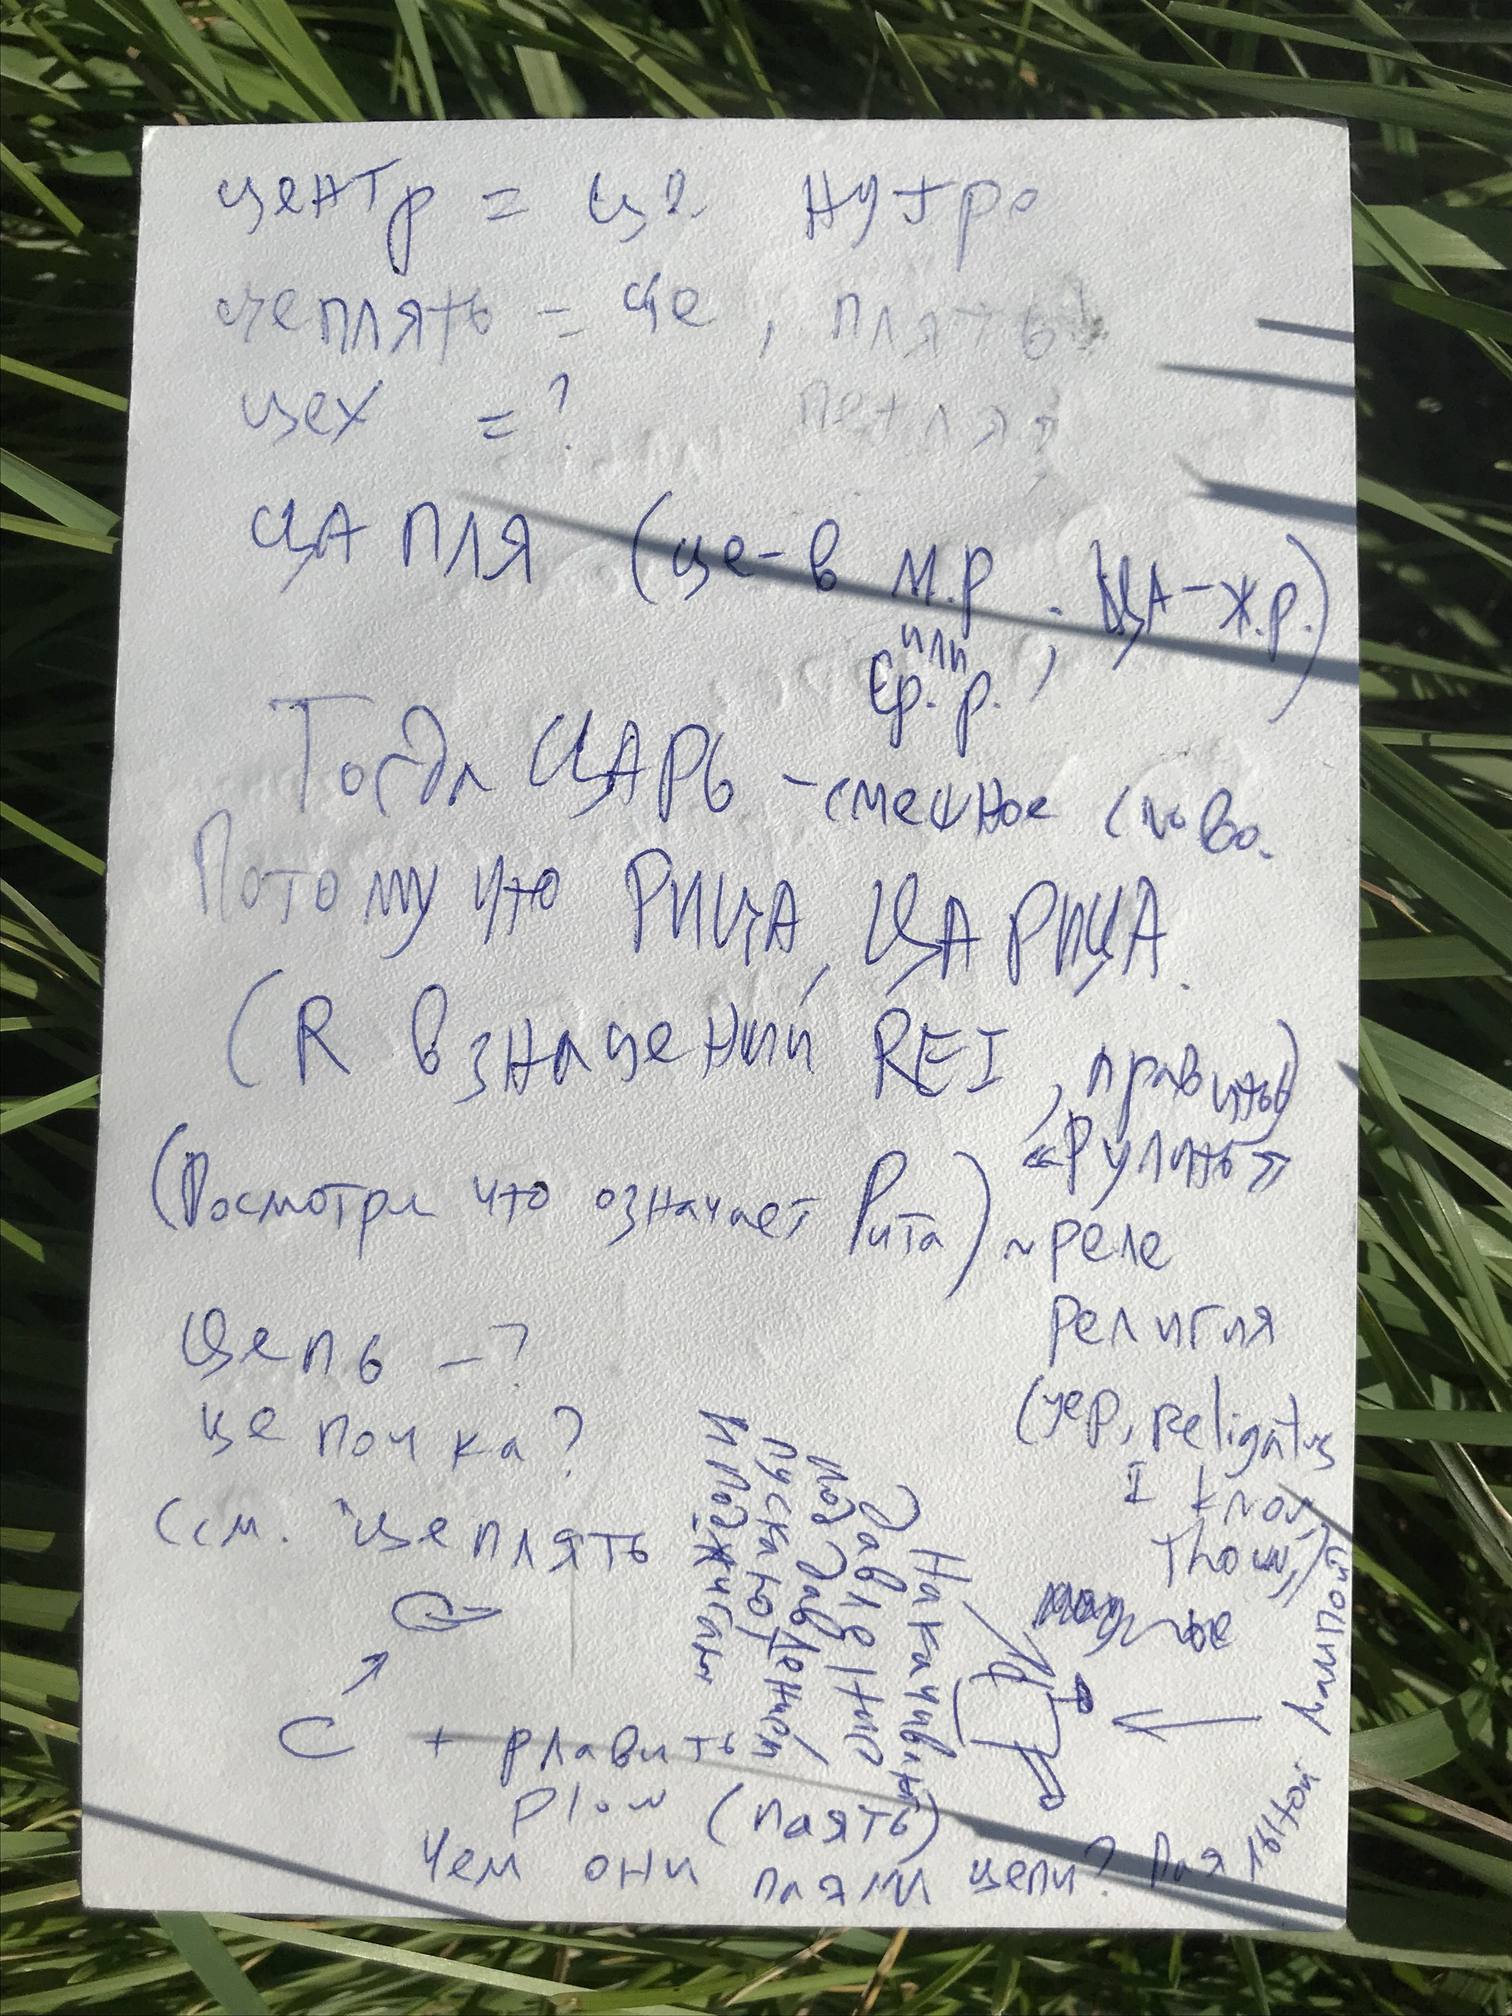 центр = це нутро
цеплять = це, плять
петля?
цех = ?
ЦАПЛЯ (це-в м.р или ср.р. ; ЦА-ж.р.)
Тогда ЦАРЬ - смешное слово.
Потому что РИЦА, ЦАРИЦА.
(R в значении REI, править)
«Рулить»
(Посмотри что означает Рита) ~ реле
религия
(yep, religatus
I know,
Thou,)
Цепь - ?
цепочка?
(см. цеплять
C + плавить
plow (паять)
Чем они паяли цепи? Паяльной лампой
Накачивать
давление
под давлением
пускают
и поджигают